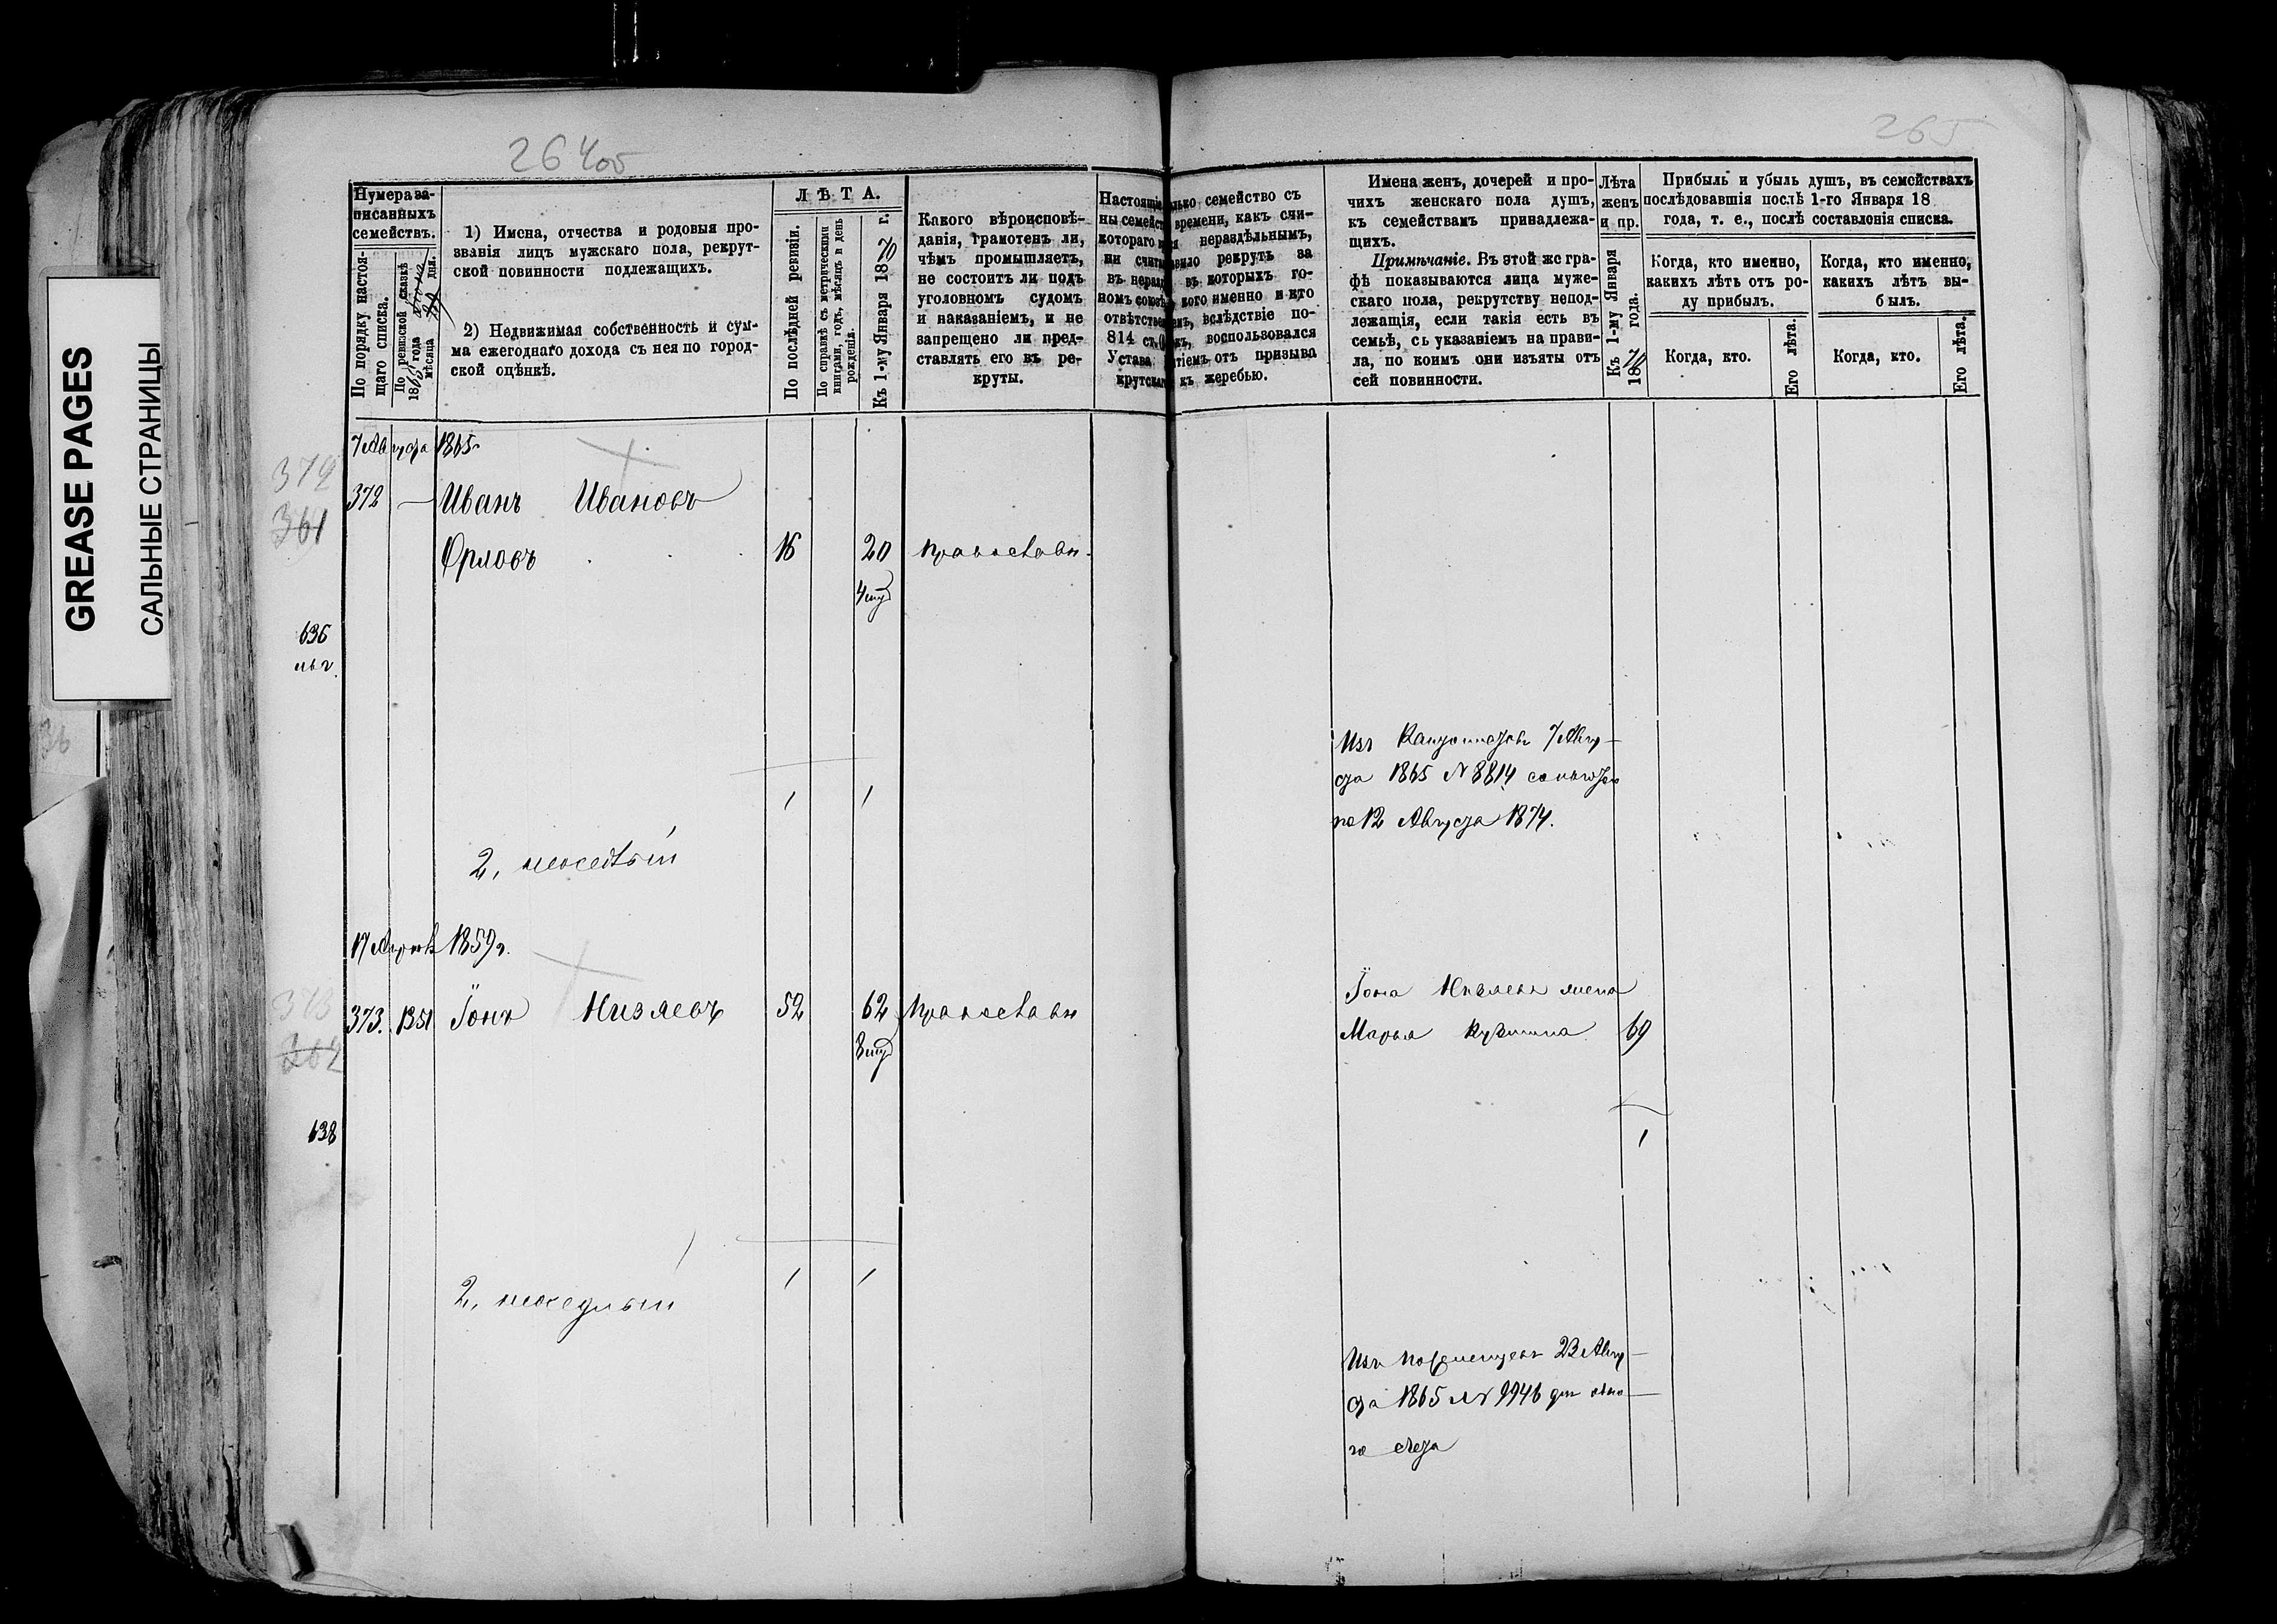 GREASE PAGES
САЛЬНЫЕ СТРАНИЦЫ
264 об
265
Нумера за-
писанныхъ
семействъ.
По порядку настоя-
щаго списка.
По ревизской сказкѣ
18 года
мѣсяца дня.
1) Имена, отчества и родовыя про-
званія лицъ мужскаго пола, рекрут-
ской повинности подлежащихъ.
2) Недвижимая собственность и сум-
ма ежегоднаго дохода съ нея по город-
ской оцѣнкѣ.
ЛѢТА.
По послѣдней ревизіи.
По справкѣ съ метрическими
книгами, годъ, мѣсяцъ и день
рожденія.
Къ 1-му Января 1870 г.
Какого вѣроисповѣ-
данія, грамотенъ ли,
чѣмъ промышляетъ,
не состоитъ ли подъ
уголовномъ судомъ
и наказаніемъ, и не
запрещено ли пред-
ставлять его въ ре-
круты.
Настоящіе
ны семейст
котораго
ни счита
въ нераз
номъ союзѣ
отвѣтствен
814 ст.
Устава
крутскаго
лько семейство съ
времени, какъ счи-
ся нераздѣльнымъ,
вило рекрутъ за
въ которыхъ го-
кого именно и кто
емъ, вслѣдствіе по-
къ, воспользовался
тіемъ отъ призыва
къ жеребью.
Имена женъ, дочерей и про-
чихъ женскаго пола душъ,
къ семействамъ принадлежа-
щихъ.
Примѣчаніе. Въ этой же гра-
фѣ показываются лица муже-
скаго пола, рекрутству непод-
лежащія, если такія есть въ
семьѣ, съ указаніемъ на прави-
ла, по коимъ они изъяты отъ
сей повинности.
Лѣта
женъ
и пр.
Къ 1-му Января
1870 года.
Прибыль и убыль душъ, въ семействахъ
послѣдовавшія послѣ 1-го Января 18
года, т. е., послѣ составленія списка.
Когда, кто именно,
какихъ лѣтъ отъ ро-
ду прибылъ.
Когда, кто.
Его лѣта.
Когда, кто именно,
какихъ лѣтъ вы-
былъ.
Когда, кто.
Его лѣта.
7 Августа 1865
372
361
372 — Иванъ Ивановъ
Орловъ 16 20 православн.
636
1 1
Изъ 7 Авгу-
ста 1865 № 8814 со льготою
по 12 Августа 1874.
2,
17 1859 г.
373
362
373. 1351 Іонъ Низяевъ 52 62 православн
638
Іона Низяева жена
Марья Кузмина 69
1
1 1
2,
Изъ 23 Авгу-
ста 1865 № 9946 для обща-
го счета